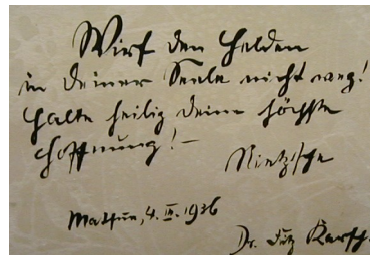 Wirf den Helden
in deiner Seele nicht weg!
Halte heilig deine höchste
Hoffnung! –
Nietzsche
Matsue, 4. II. 1936
Dr. Fritz Karsch.